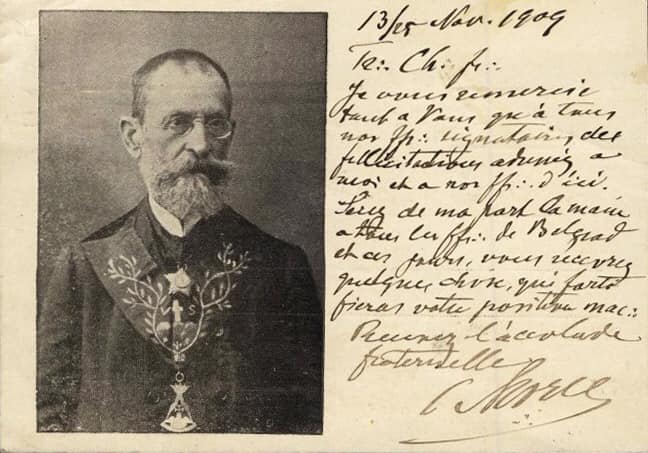 13/25 Nov. 1909
Tr∴ Ch. fr∴
Je vous remercie
tant a Vous qu'à tous
nos ff∴ signataires des
fellicitations adressées a
moi et a nos ff∴ d'ici.
Serez de ma part la main
a tous les ff∴ de Belgrad
et ces jours, vous recevrez
quelques chose, qui forti
fieras votre position mac∴
Recevez l'accolade
fraternelle
C
V S